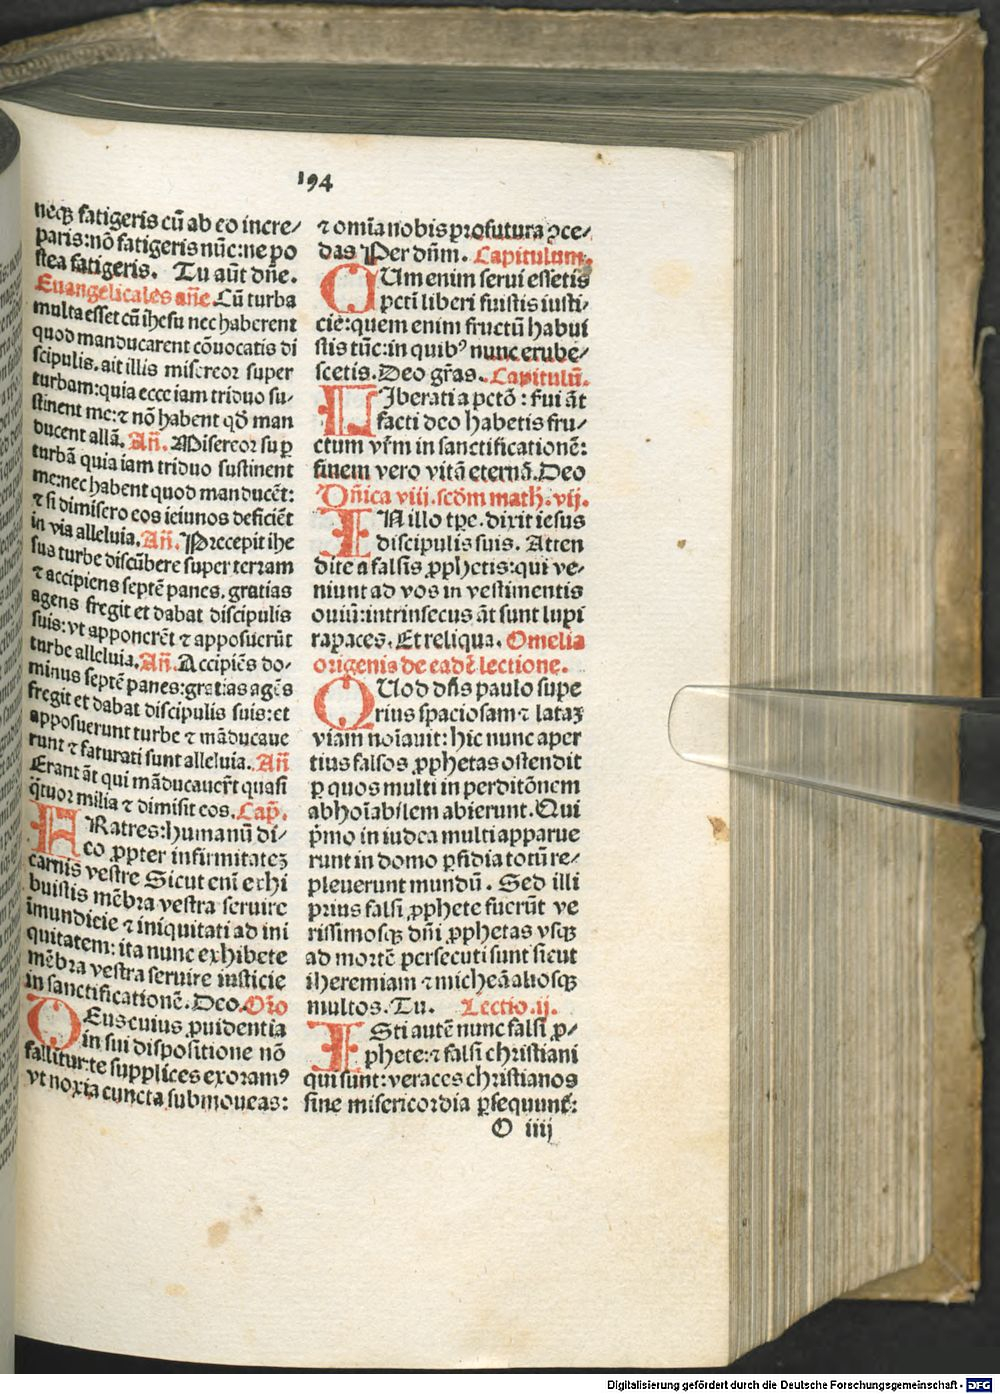 194
neq̄ fatigeris cū ab eo incre-
paris: nō fatigeris nūc: ne po
stea fatigeris. Tu aūt dn̄e.
Euangelicales an̄e. Cū turba
multa esset cū ih̄esu nec haberent
quod manducarent cōuocatis di
scipulis. ait illis misereor super
turbam: quia ecce iam triduo su-
stinent me: ⁊ nō habent qd̄ man
ducent allā. An̄. Misereor su p̱
turbā quia iam triduo sustinent
me: nec habent quod manducēt:
⁊ si dimisero eos ieiunos deficiēt
in via alleluia. An̄. Precepit ihe
sus turbe discūbere super terram
⁊ accipiens septē panes. gratias
agens fregit et dabat discipulis
suis: vt apponerēt ⁊ apposuerūt
turbe alleluia. An̄. Accipiēs do-
minus septē panes: gratias agēs
fregit et dabat discipulis suis: et
apposuerunt turbe ⁊ māducaue
runt ⁊ saturati sunt alleluia. An̄
Erant āt qui māducauer̄t quasi
q̄tuor milia ⁊ dimisit eos. Cap̄.
FRatres: humanū di-
co ꝓpter infirmitatez
carnis vestre Sicut enī exhi
buistis mēbra vestra seruire
īmundicie ⁊ iniquitati ad ini
quitatem: ita nunc exhibete
mēbra vestra seruire iusticie
in sanctificationē. Deo. Or̄o
DEus cuius ꝓuidentia
in sui dispositione nō
fallitur: te supplices exoramꝰ
vt noxia cuncta submoueas:
⁊ omīa nobis profutura ꝯce-
das Per dn̄m. Capitulum.
CUm enim serui essetis
pctī liberi fuistis iusti-
cie: quem enim fructū habui
stis tūc: in quibꝰ nunc erube-
scetis. Deo gr̄as. Capitulū.
LIberati a pctō: serui āt
facti deo habetis fru-
ctum vr̄m in sanctificationē:
finem vero vitā eternā. Deo
Dn̄ica viii. scd̄m math. vij.
IN illo tpe. dixit iesus
discipulis suis. Atten
dite a falsis ꝓphetis: qui ve-
niunt ad vos in vestimentis
ouiū: intrinsecus āt sunt lupi
rapaces. Et reliqua. Omelia
origenis de eadē lectione.
QUod dn̄s paulo supe
rius spaciosam ⁊ lataꝫ
viam noīauit: hic nunc aper
tius falsos ꝓphetas ostendit
ꝑ quos multi in perditōnem
abhoīabilem abierunt. Qui
p̄mo in iudea multi apparue
runt in domo ꝑfidia totū re-
pleuerunt mundū. Sed illi
prius falsi ꝓphete fuerūt ve
rissimosqꝫ dn̄i ꝓphetas vsqꝫ
ad mortē persecuti sunt sicut
iheremiam ⁊ micheā aliosqꝫ
multos. Tu. Lectio .ij.
ISti autē nunc falsi ꝓ-
phete: ⁊ falsi christiani
qui sunt: veraces christianos
sine misericordia ꝑsequunt̄:
O iiij
Digitalisierung gefördert durch die Deutsche Forschungsgemeinschaft - DFG